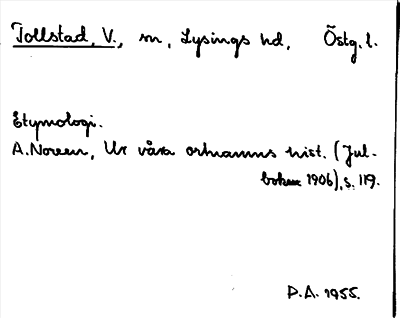 Tollstad, V., sn, Lysings hd, Östg. l.
Etymologi.
A. Noreen, Ur våra ortnamns hist. (Jul-
boken 1906), s. 119.
D.A. 1955.